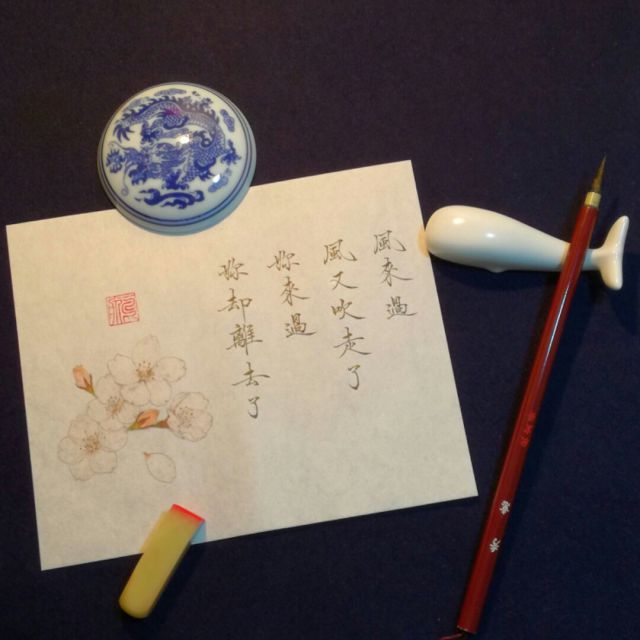 風來過
風又吹走了
妳來過
妳却離去了